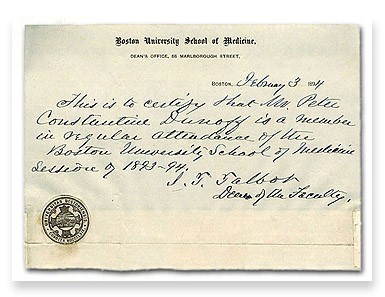 Boston University School of Medicine,
DEAN'S OFFICE, 66 MARLBOROUGH STREET,
BOSTON, February 3 1894
This is to certify that Mr. Peter
Constantine Dunoff is a member
in regular attendance of the
Boston University School of Medicine
Session of 1893-94.
I. T. Talbot
Dean of the Faculty.